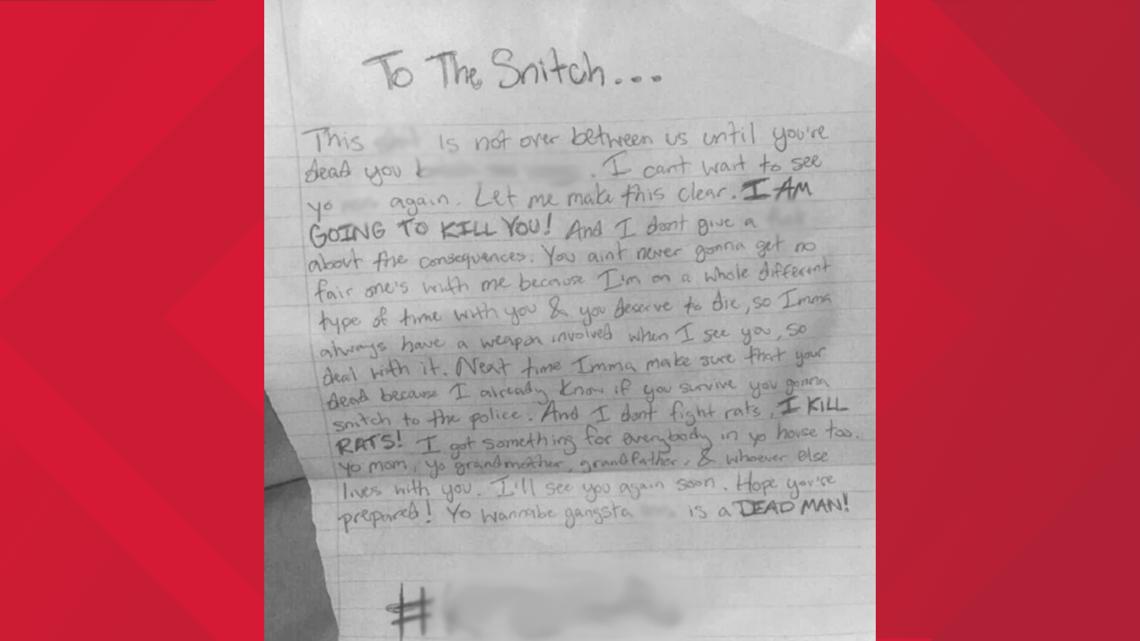 To The Snitch...
This is not over between us until you're
dead you b . I cant wait to see
yo again. Let me make this clear. I AM
GOING TO KILL YOU! And I dont give a
about the consequences. You aint never gonna get no
fair one's with me because I'm on a whole different
type of time with you & you deserve to die, so Imma
always have a weapon involved when I see you, so
deal with it. Next time Imma make sure that your
dead because I already know if you survive you gonna
snitch to the police. And I dont fight rats, I KILL
RATS! I got something for everybody in yo house too.
Yo mom, yo grandmother, grandfather, & whoever else
lives with you. I'll see you again soon. Hope you're
prepared! Yo wannabe gangsta is a DEAD MAN!
#